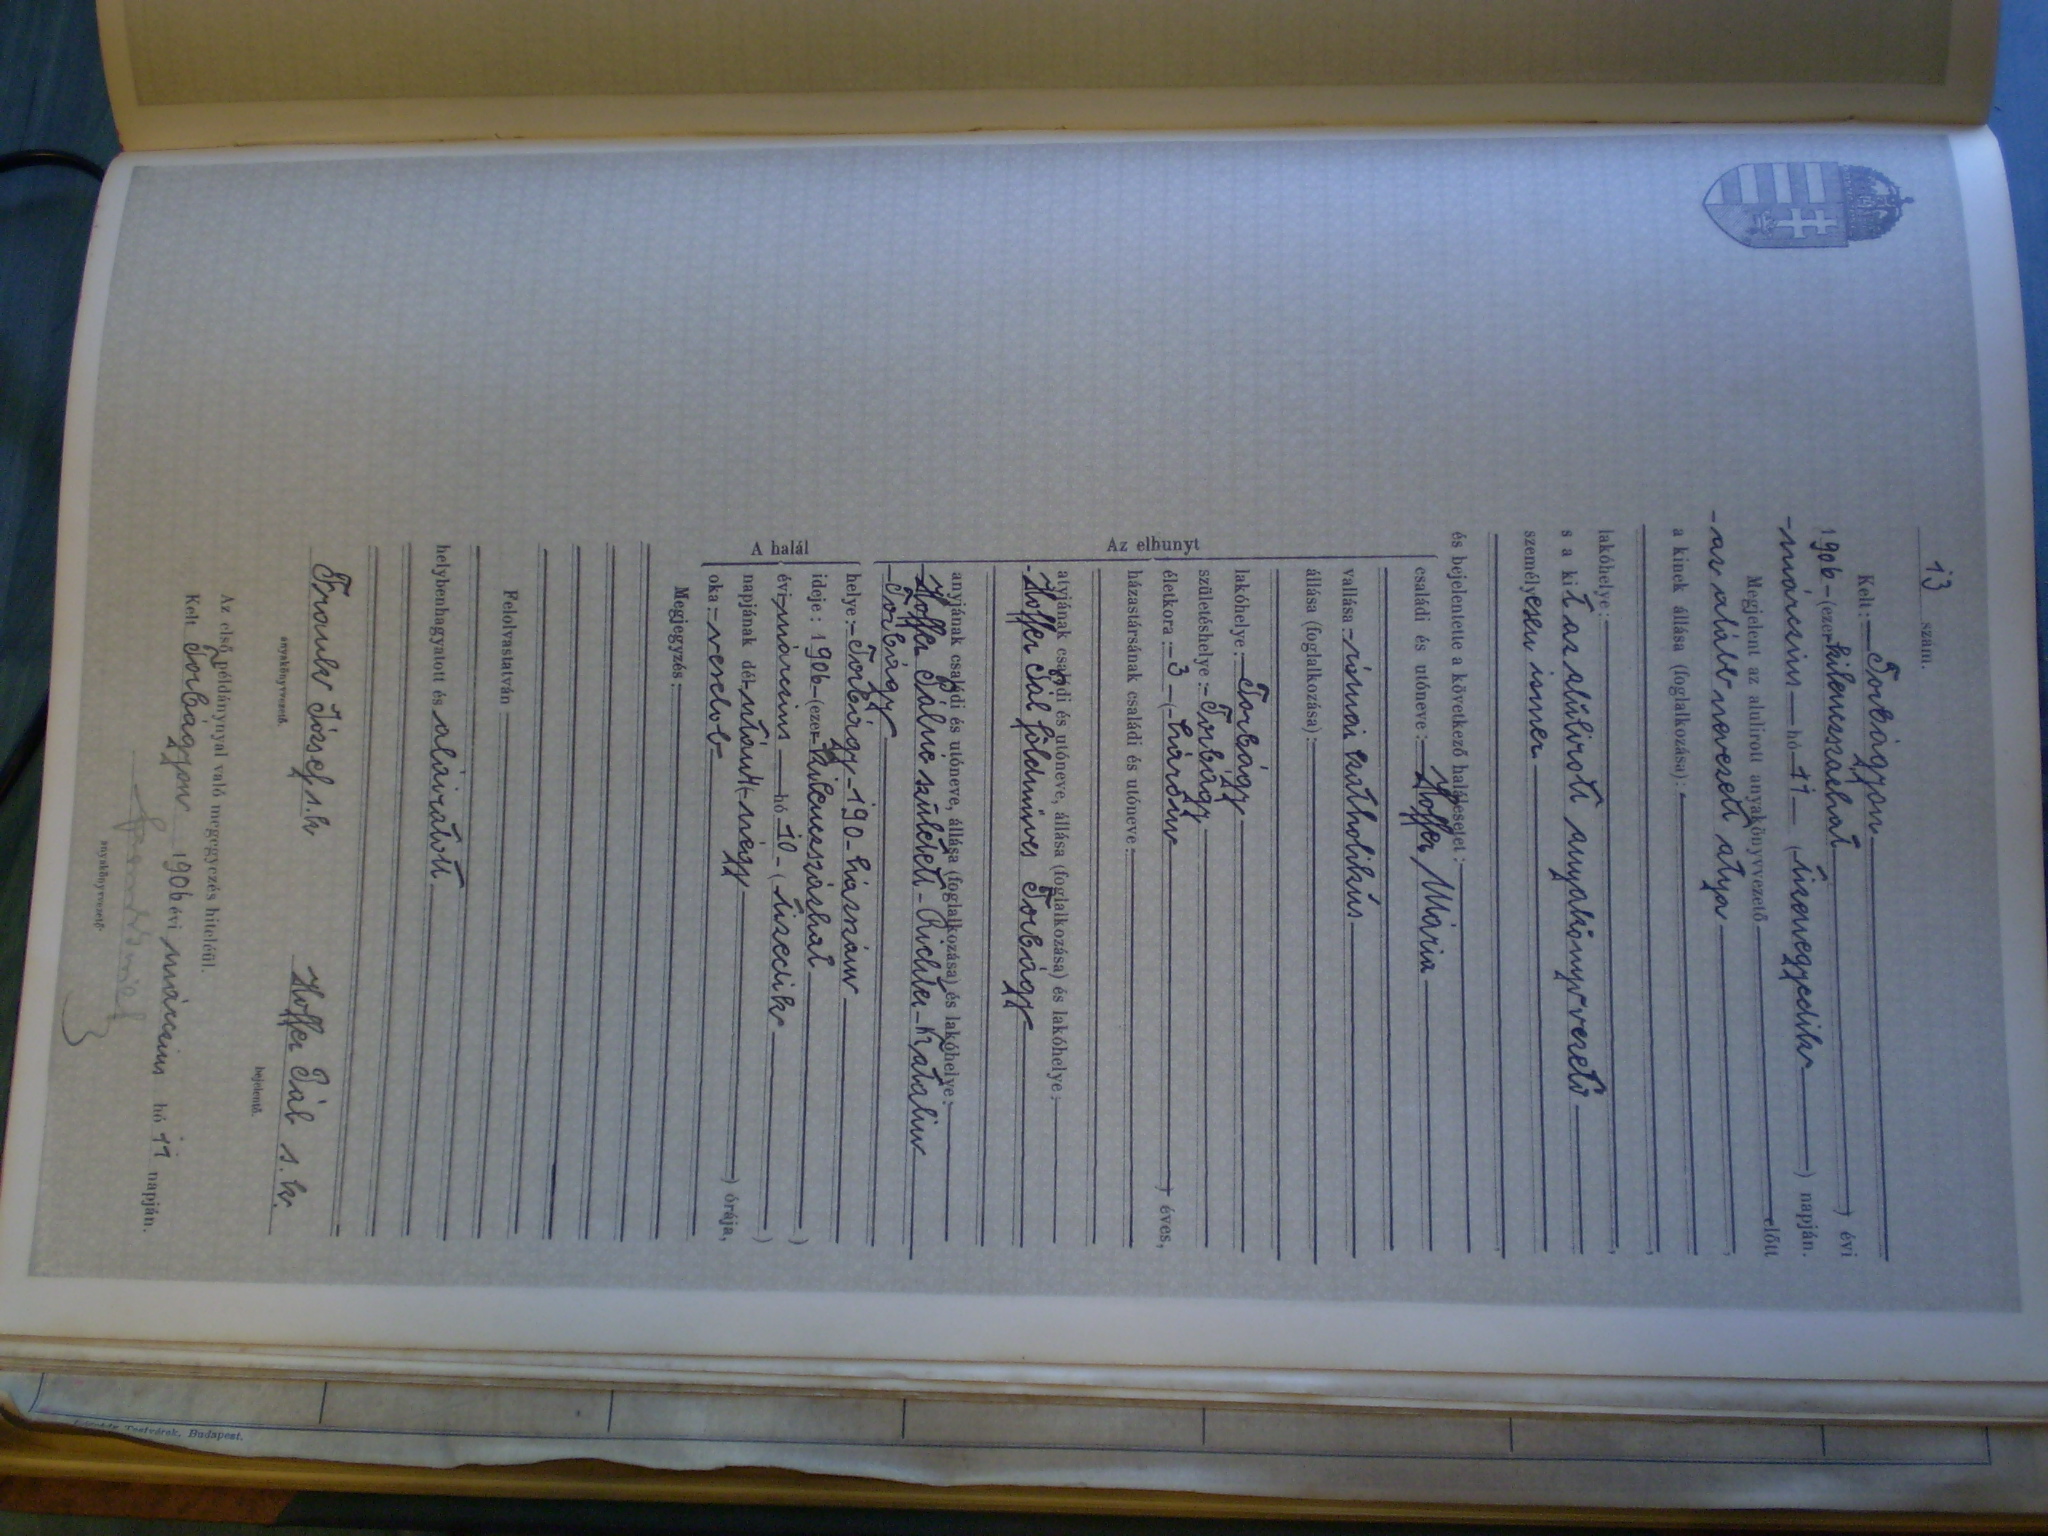 13 szám.
Kelt: Torbágyon
1906 (ezer kilenczszázhat) évi
márczius hó 11 (tizenegyedik) napján.
Megjelent az alulirott anyakönyvvezető előtt
az alább nevezett atya,
a kinek állása (foglalkozása):
lakóhelye:
s a kit az alulirott anyakönyvvezető
személyesen ismer
és bejelentette a következő halálesetet:
Az elhunyt
családi és utóneve: Hoffer Mária
vallása: római katholikus
állása (foglalkozása):
lakóhelye: Torbágy
születéshelye: Torbágy
életkora: 3 (három) éves,
házastársának családi és utóneve:
atyjának családi és utóneve, állása (foglalkozása) és lakóhelye:
Hoffer Pál földmíves Torbágy
anyjának családi és utóneve, állása (foglalkozása) és lakóhelye:
Hoffer Pálné született Richter Katalin
Torbágy
A halál
helye: Torbágy 190 házszám
ideje: 1906 (ezer kilenczszázhat)
évi márczius hó 10 (tizedik)
napjának dél utáni négy) órája,
oka: veselob
Megjegyzés:
Felolvastatván
helybenhagyatott és aláiratott.
Frank József s. k.
anyakönyvvezető.
Hoffer Pál s. k.
bejelentő.
Az első példánynyal való megegyezés hiteléül.
Kelt Torbágyon 1906 évi márczius hó 11 napján.
anyakönyvvezető.
Testvérek, Budapest.